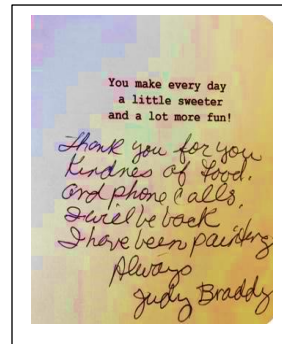 You make every day
a little sweeter
and a lot more fun!
Thank you for you
Kindnes of food.
and phone calls,
I will be back
I have been painting
Always
Judy Braddy